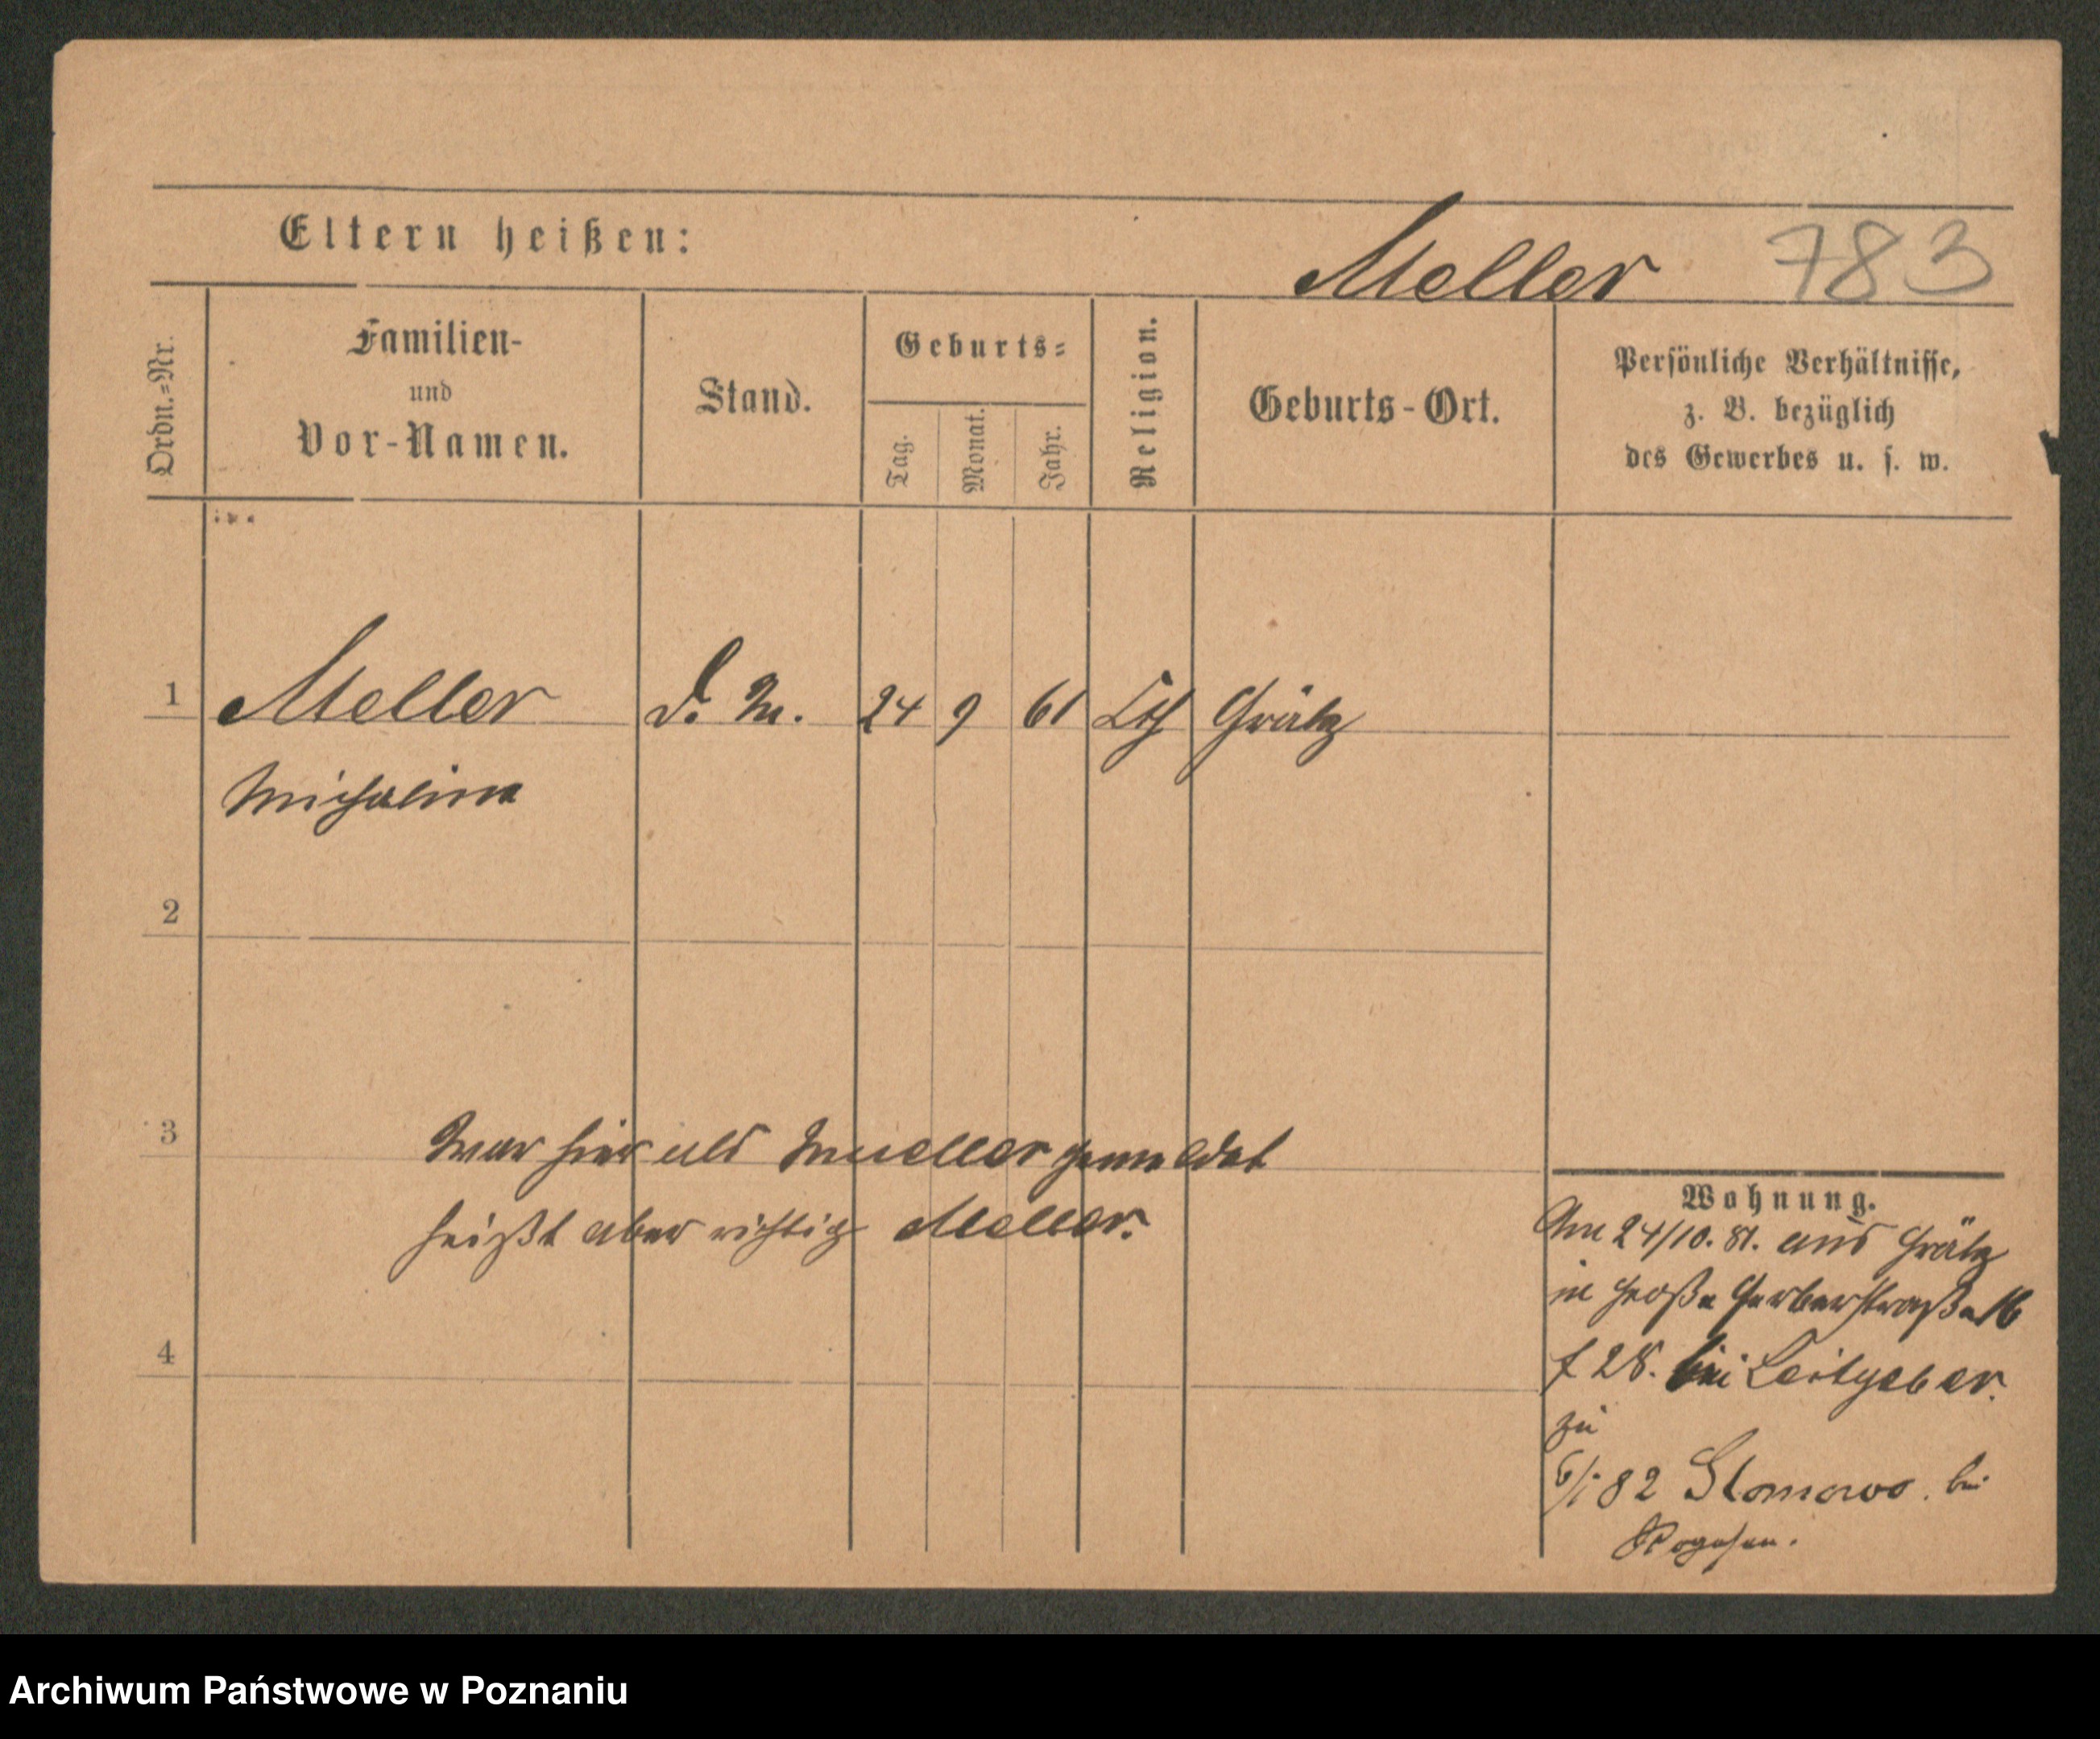 Eltern heißen:
Meller 783
Ordn.=Nr.
Familien-
und
Vor-Namen.
Stand.
Geburts=
Tag.
Monat.
Jahr.
Religion.
Geburts-Ort.
Persönliche Verhältnisse,
z. B. bezüglich
des Gewerbes u. s. w.
1 Meller D. M. 24 9 61 kth Grätz
Michalina
2
3
War hier als Mueller gemeldet
heißt aber richtig Meller.
4
Wohnung.
Am 24/10. 81. aus Grätz
in Große Gerberstraße 16
f 28. bei Leitgeber.
zu
6/1 82 Slomowo. bei
Rogasen.
Archiwum Państwowe w Poznaniu